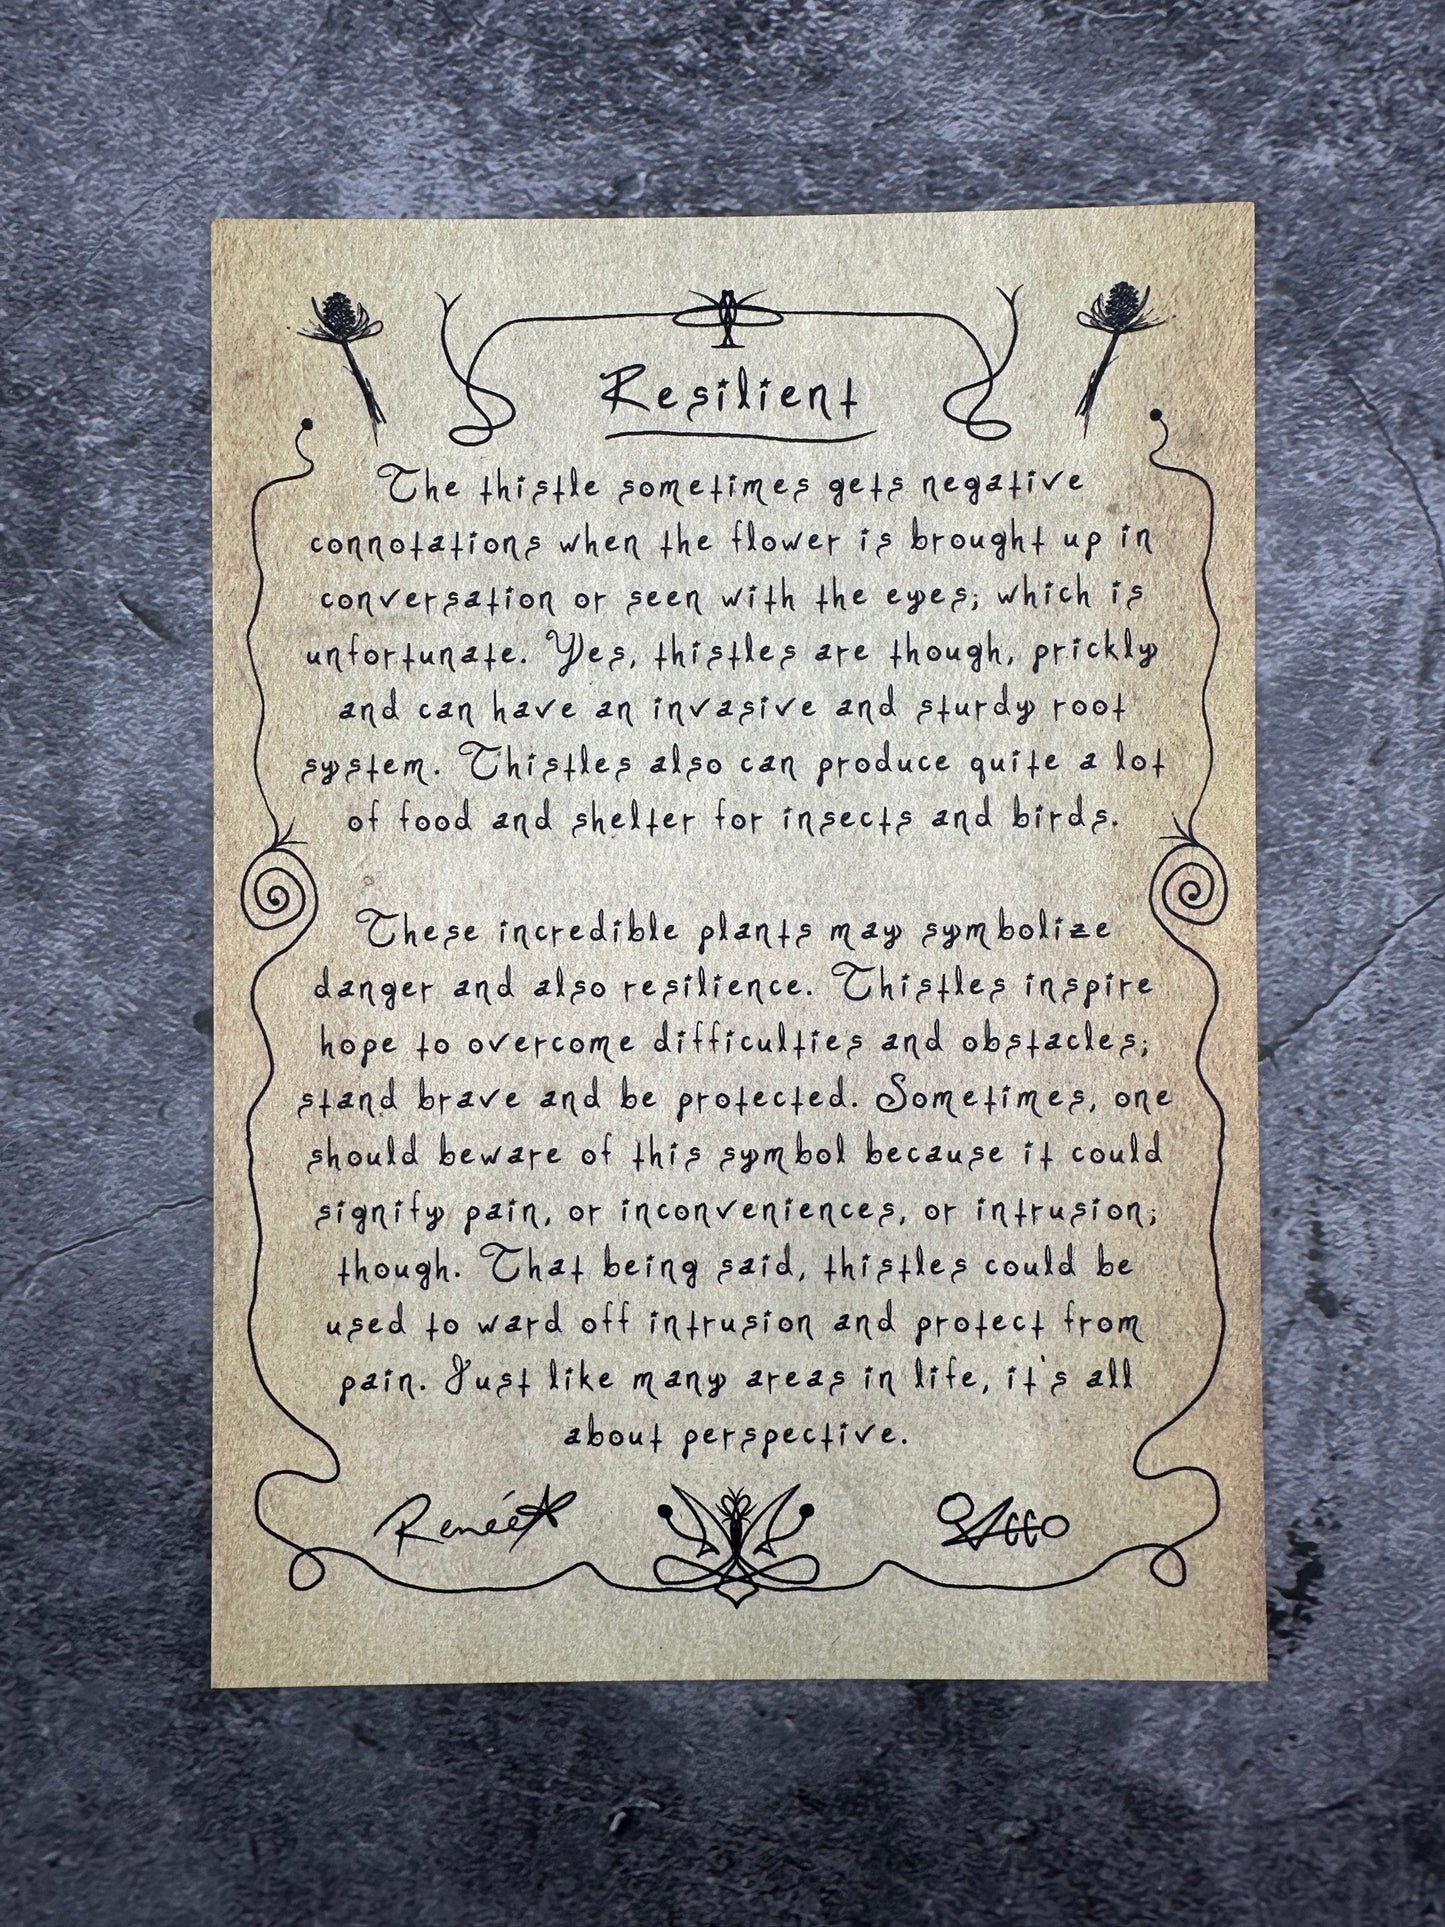 Resilient
The thistle sometimes gets negative
connotations when the flower is brought up in
conversation or seen with the eyes; which is
unfortunate. Yes, thistles are though, prickly
and can have an invasive and sturdy root
system. Thistles also can produce quite a lot
of food and shelter for insects and birds.
These incredible plants may symbolize
danger and also resilience. Thistles inspire
hope to overcome difficulties and obstacles;
stand brave and be protected. Sometimes, one
should beware of this symbol because it could
signify pain, or inconveniences, or intrusion;
though. That being said, thistles could be
used to ward off intrusion and protect from
pain. Just like many areas in life, it's all
about perspective.
Renée